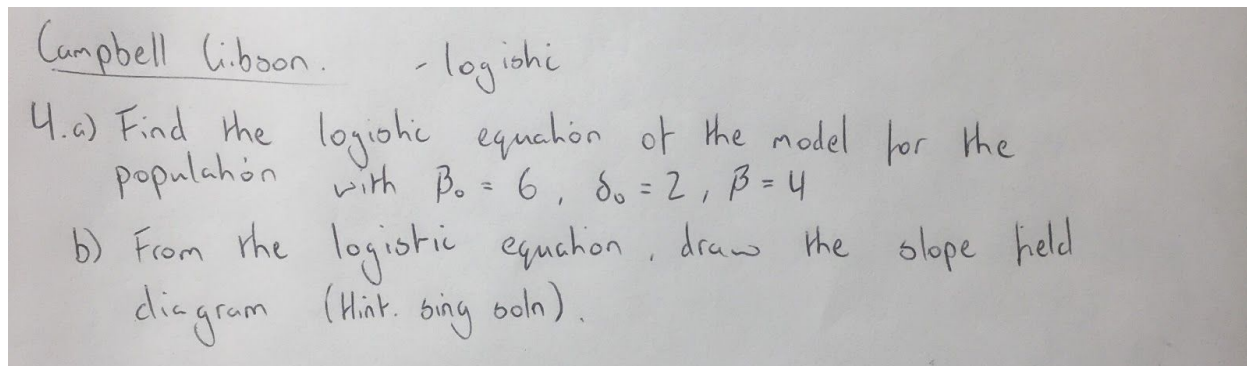 Campbell Gibson. - logistic
4.a) Find the logistic equation of the model for the
population with β₀ = 6, δ₀ = 2, β = 4
b) From the logistic equation, draw the slope field
diagram (Hint. sing soln).